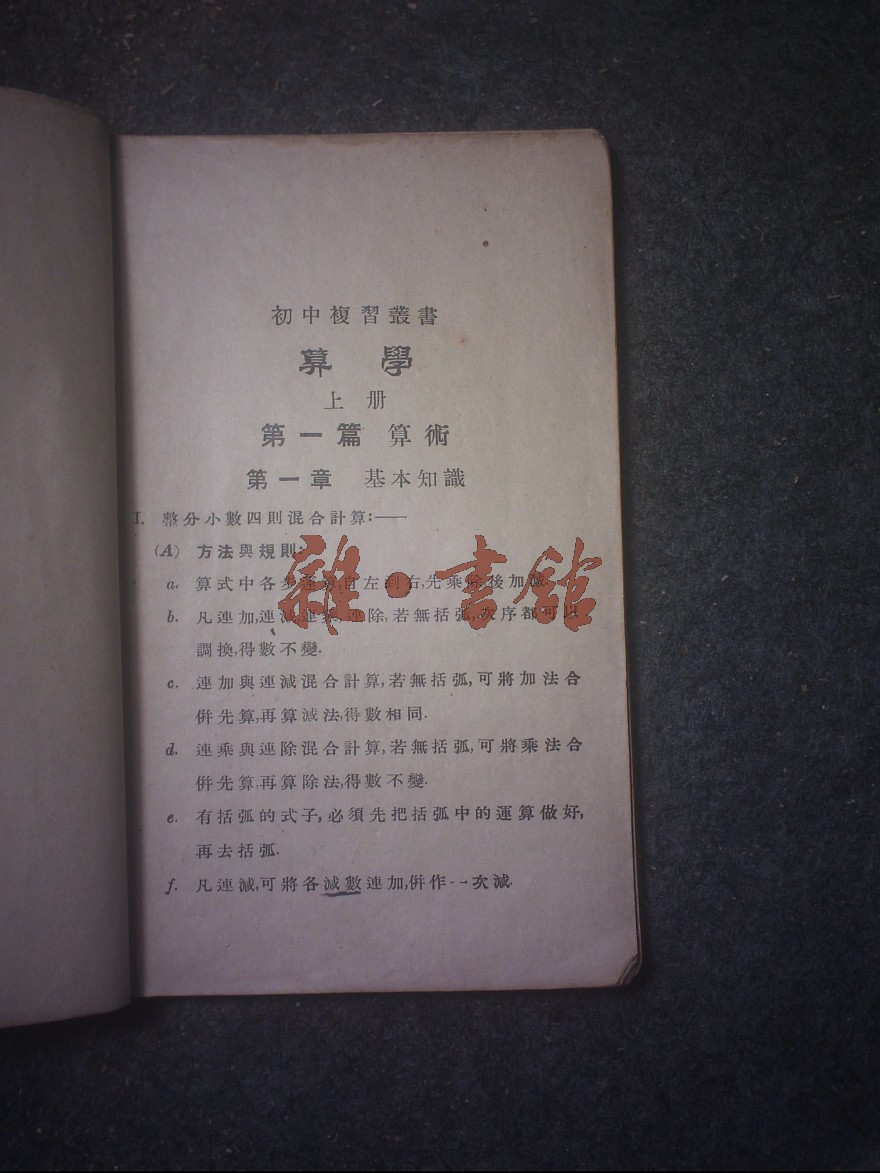 初中複習叢書
算學
上册
第一篇 算術
第一章 基本知識
I. 整分小數四則混合計算:——
(A) 方法與規則:
a. 算式中各步運算,自左到右,先乘除後加減.
b. 凡連加,連減,連乘,連除,若無括弧,次序都可以
調換,得數不變.
c. 連加與連減混合計算,若無括弧,可將加法合
倂先算,再算減法,得數相同.
d. 連乘與連除混合計算,若無括弧,可將乘法合
倂先算,再算除法,得數不變.
e. 有括弧的式子,必須先把括弧中的運算做好,
再去括弧.
f. 凡連減,可將各減數連加,倂作一次減.
雜·書館